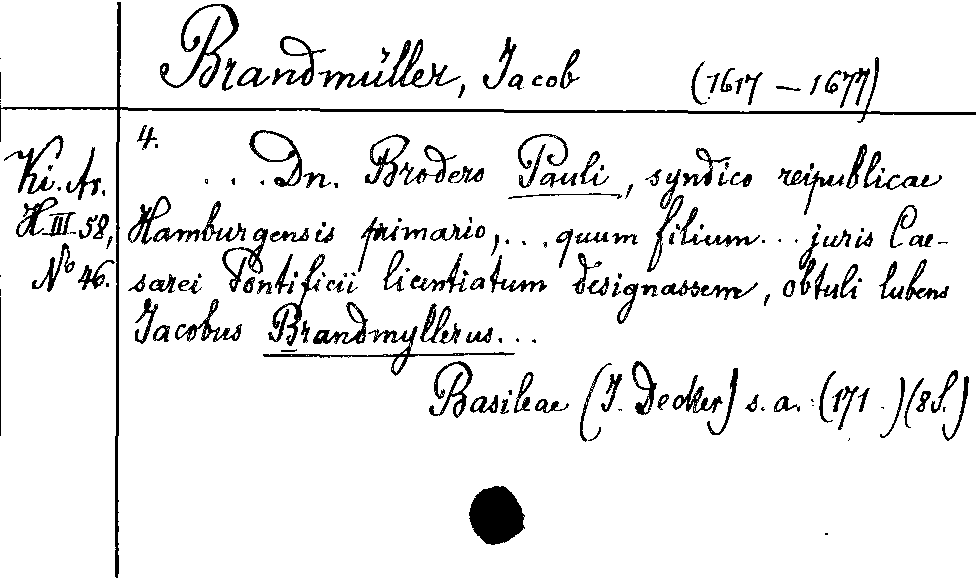 Brandmüller, Jacob (1617 – 1677)
4.
Ki. Ar.
H III 58,
No 46.
. . . Dn. Brodero Pauli, syndico reipublicae
Hamburgensis primario, . . . quum filium . . . juris Cae-
sarei Pontificii licentiatum designassem, obtuli lubens
Jacobus Brandmyllerus. . .
Basileae (J. Decker) s. a. (171 . ) (8 S.)